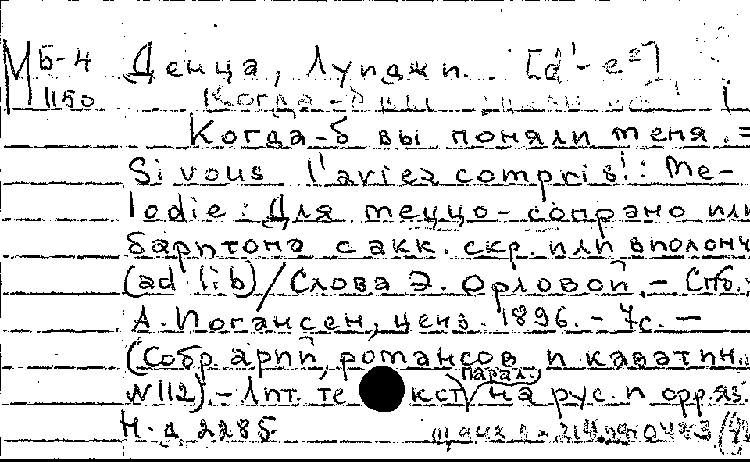 М Б-4 Денца, Луиджи. [d¹-e²]
1150 Когда-б вы
Когда-б вы поняли меня. =
Si vous l'aviez compris!: Me-
lodie: Для меццо-сопрано или
баритона с акк. скр. или виолонч
(ad lib) / Слова Э. Орловой. - Спб.:
А. Иогансен, ценз. 1896. - 7с. -
(Собр арий, романсов и каватин.
N112). - Лит. текст (парал.) на рус. и фр яз.
Н.д. 2285